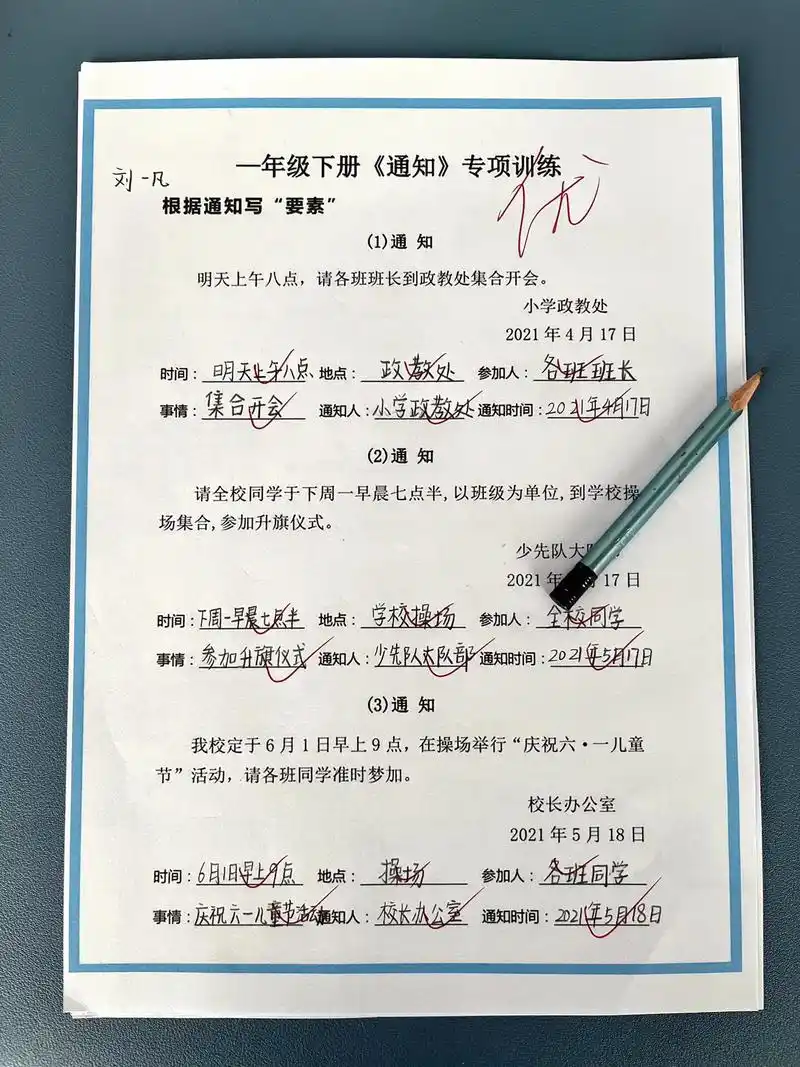 一年级下册《通知》专项训练
刘一凡
优
根据通知写“要素”
(1)通 知
明天上午八点，请各班班长到政教处集合开会。
小学政教处
2021年4月17日
时间：明天上午八点 地点：政教处 参加人：各班班长
事情：集合开会 通知人：小学政教处 通知时间：2021年4月17日
(2)通 知
请全校同学于下周一早晨七点半,以班级为单位,到学校操
场集合,参加升旗仪式。
少先队大
2021年 17日
时间：下周一早晨七点半 地点：学校操场 参加人：全校同学
事情：参加升旗仪式 通知人：少先队大队部 通知时间：2021年5月17日
(3)通 知
我校定于6月1日早上9点，在操场举行“庆祝六·一儿童
节”活动，请各班同学准时梦加。
校长办公室
2021年5月18日
时间：6月1日早上9点 地点：操场 参加人：各班同学
事情：庆祝六一儿童节活动 通知人：校长办公室 通知时间：2021年5月18日